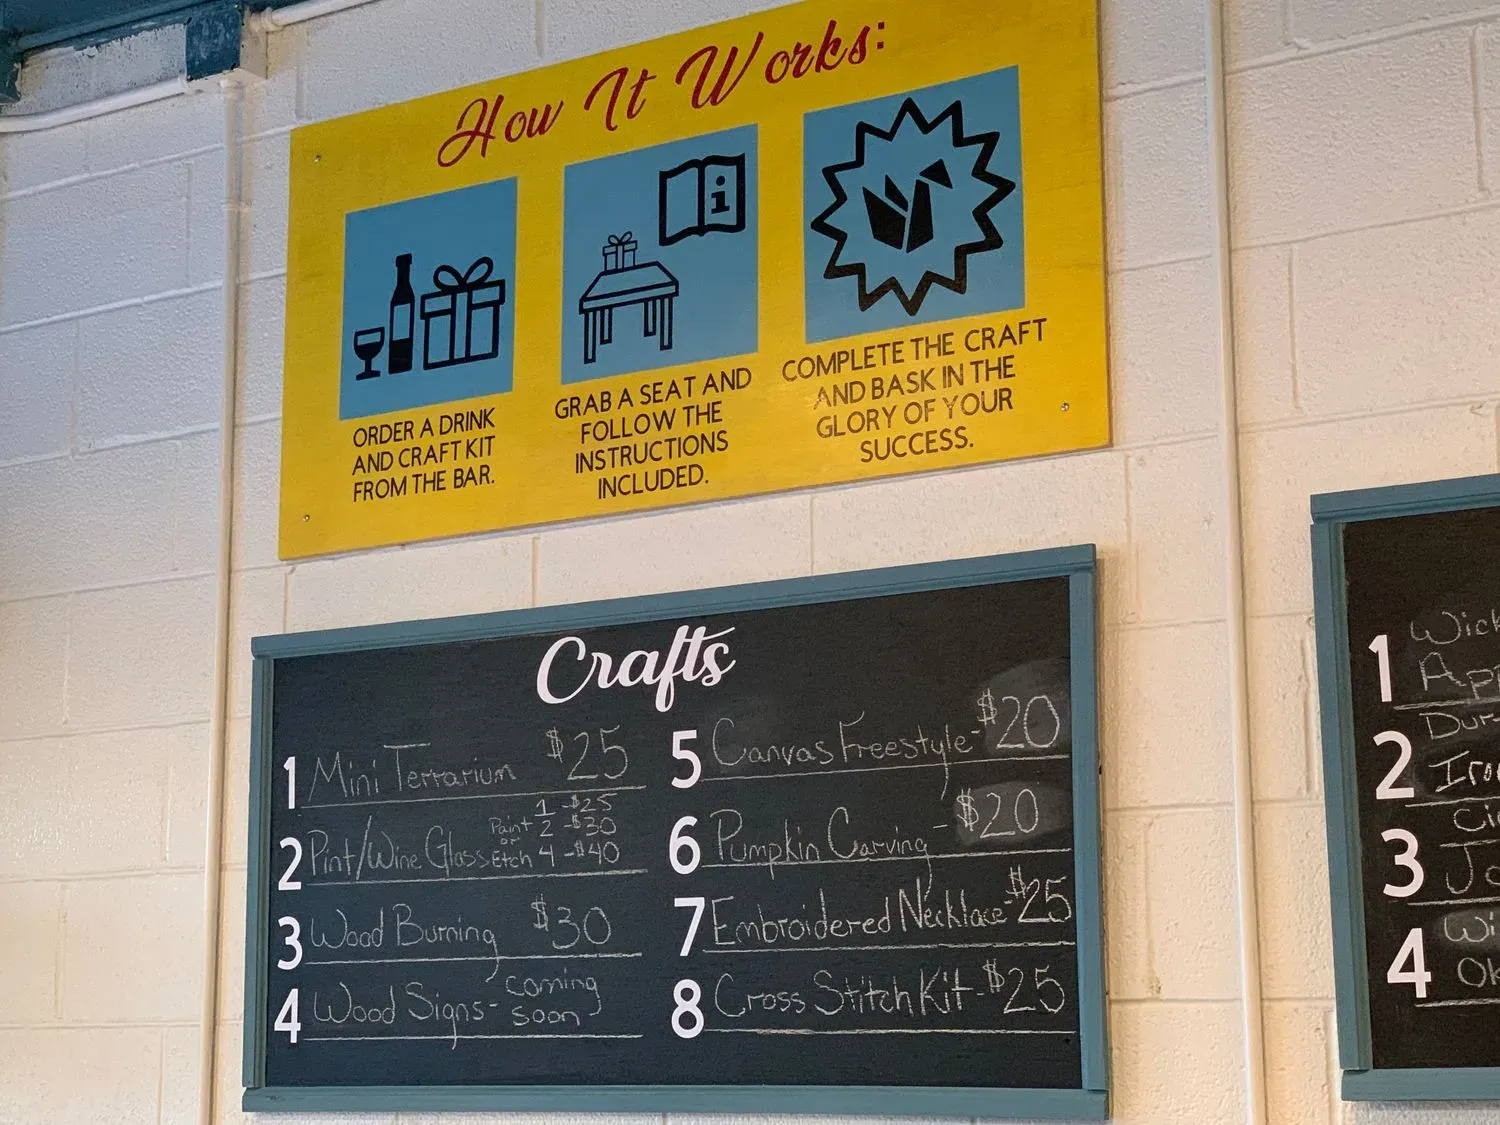 How It Works:
i
ORDER A DRINK
AND CRAFT KIT
FROM THE BAR.
GRAB A SEAT AND
FOLLOW THE
INSTRUCTIONS
INCLUDED.
COMPLETE THE CRAFT
AND BASK IN THE
GLORY OF YOUR
SUCCESS.
Crafts
1 Mini Terrarium $25
2 Pint/Wine Glass Paint or Etch
1 - $25
2 - $30
4 - $40
3 Wood Burning $30
4 Wood Signs - coming
soon
5 Canvas Freestyle - $20
6 Pumpkin Carving - $20
7 Embroidered Necklace - $25
8 Cross Stitch Kit - $25
1
2
3
4